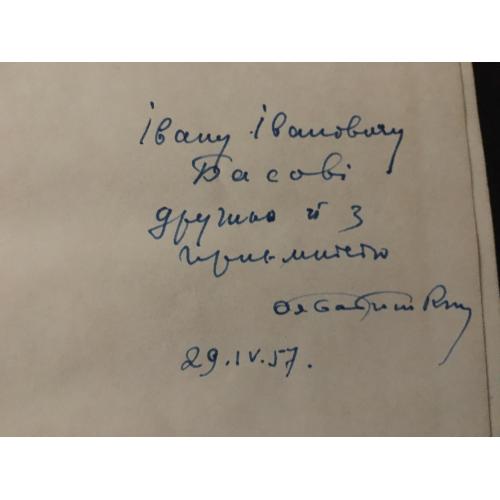 Івану Івановичу
Басові
дружньо й з
приємністю
29.IV.57.